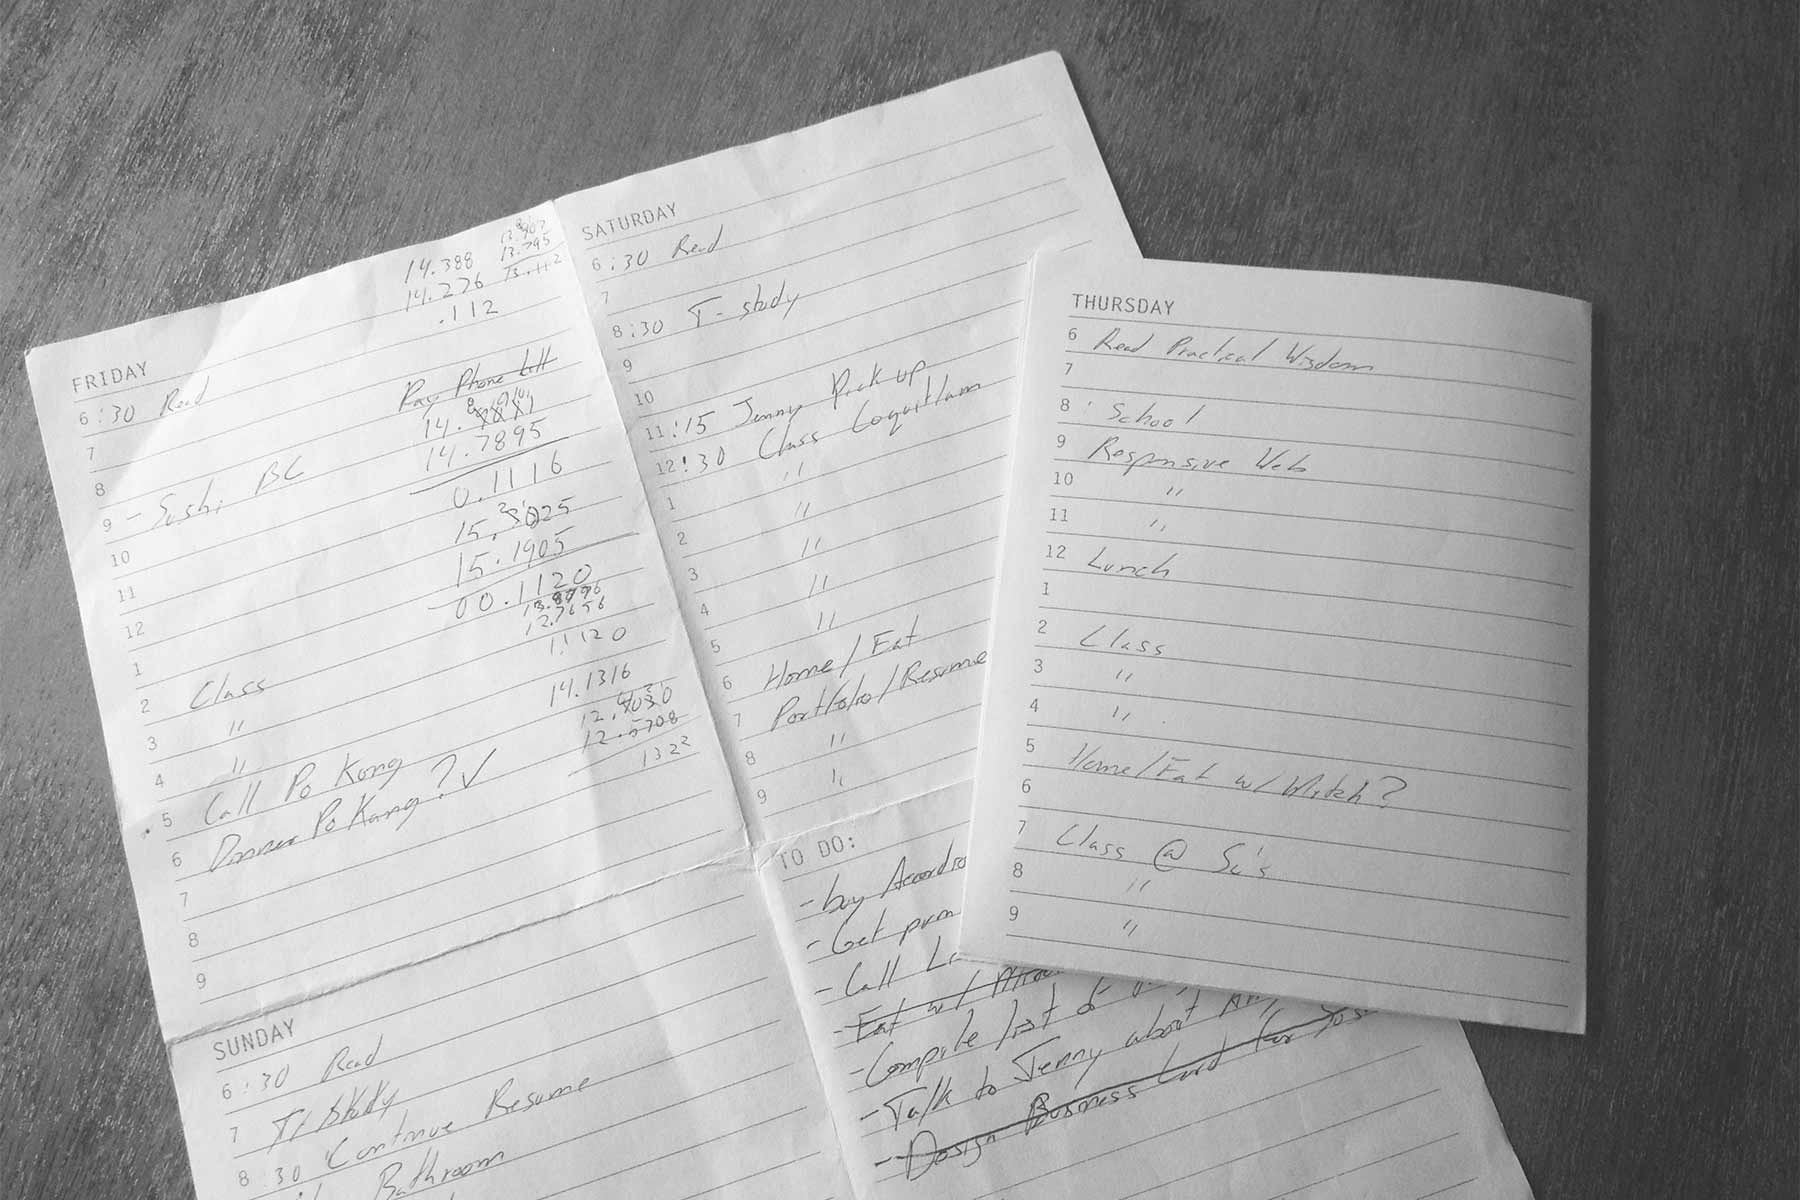 FRIDAY
14.388
14.276
.112
13.795
6:30 Read
Pay Phone bill
7
14.
14.7895
8
0.1116
9 - Sushi BC
15.3025
10
15.1905
11
00.1120
12
12.7656
1.1120
1
14.1316
2 Class
3 "
12.5708
4 "
1322
5 Call Po Kong
6 Dinner Po Kong? ✓
7
8
9
SATURDAY
6:30 Read
7
8:30 T-study
9
10
11:15 Jenny Pick up
12:30 Class Coquitlam
1 "
2 "
3 "
4 "
5 "
6 Home/Eat
7 Portfolio/Resume
8 "
9 "
SUNDAY
6:30 Read
7 T/ study
8:30 Continue Resume
Bathroom
TO DO:
- buy
- Get
- Call
- Eat w/
- Compile list of
- Talk to Jenny about
- Design Business Card for
THURSDAY
6 Read Practical Wisdom
7
8 School
9 Responsive Web
10 "
11 "
12 Lunch
1
2 Class
3 "
4 "
5 Home/Eat w/ Mitch?
6
7 Class @ Su's
8 "
9 "